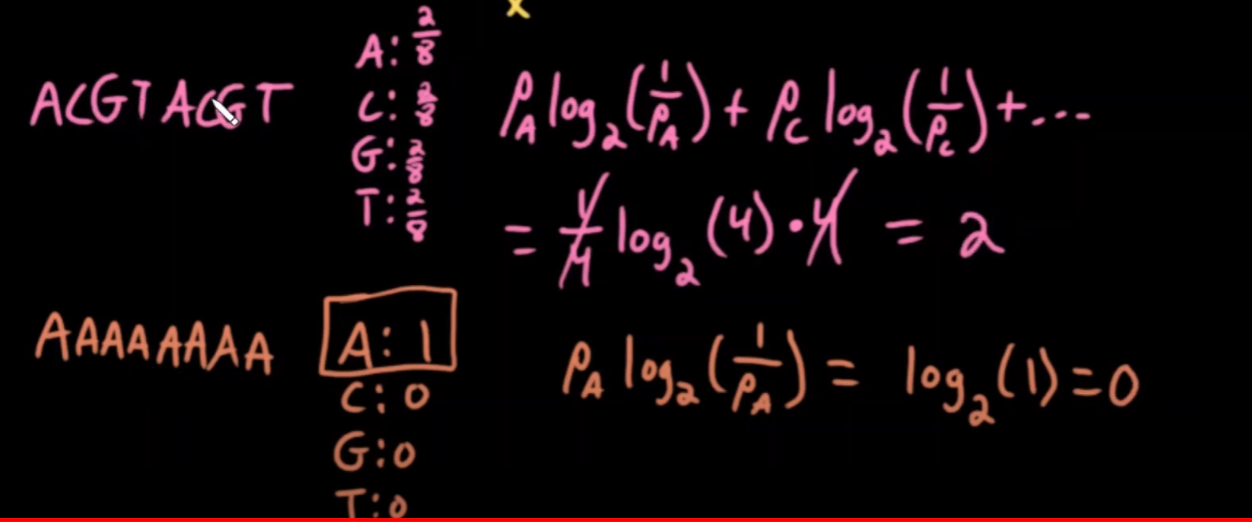 x
ACGTACGT
A: 2/8
C: 2/8
G: 2/8
T: 2/8
P_A log_2 (1/P_A) + P_C log_2 (1/P_C) + ...
= 1/4 log_2 (4) · 4 = 2
AAAAAAAA
A: 1
C: 0
G: 0
T: 0
P_A log_2 (1/P_A) = log_2 (1) = 0